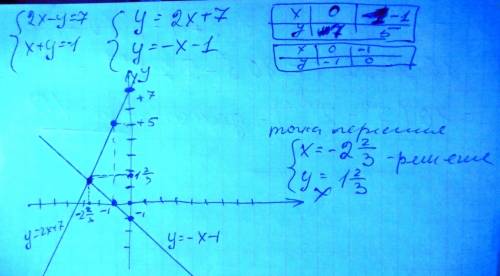 {2x-y=7
x+y=-1
{y=2x+7
y=-x-1
x 0 -1
y 7 5
x 0 -1
y -1 0
y
+7
+5
1 2/3
-2 2/3 -1
-1
x
y=2x+7
y=-x-1
точка
{x=-2 2/3
y=1 2/3
-решение